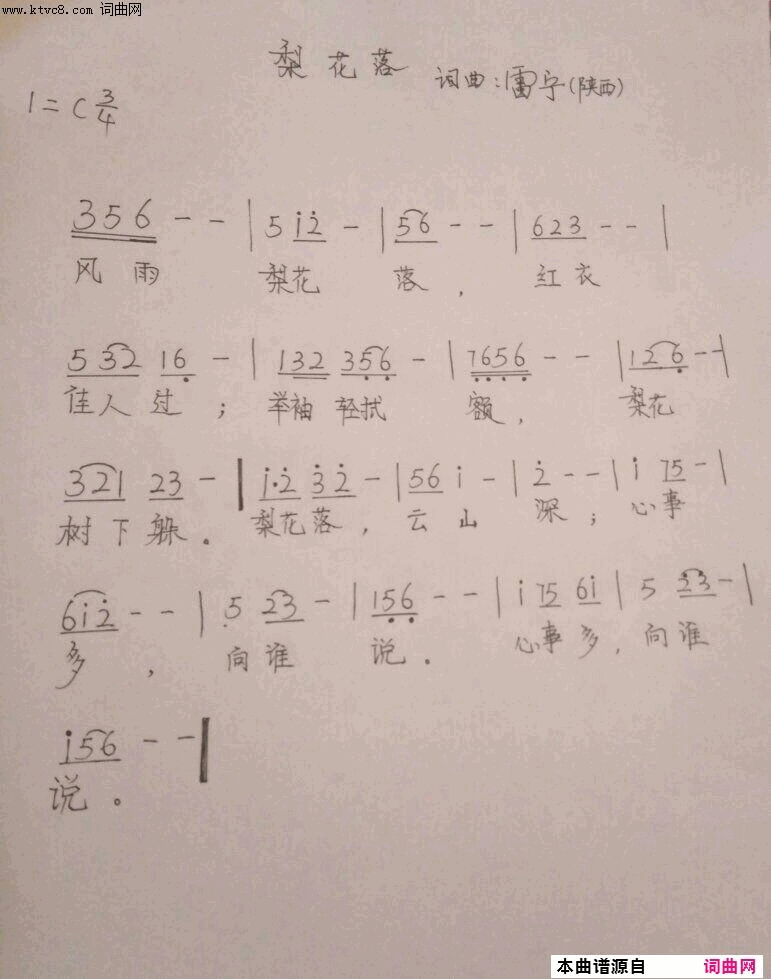 www.ktvc8.com 词曲网
梨花落 词曲:雷宁(陕西)
1=C 3/4
356 - - | 5 i̇2̇ - | 56 - - | 623 - - |
风 雨 梨花 落, 红衣
5 32 16̣ - | 132 35̣6̣ - | 7̣6̣5̣6̣ - - | 126̣ - - |
佳人 过; 举袖 轻拭 额, 梨花
321 23 - | i̇·2̇ 3̇2̇ - | 56 i̇ - | 2̇ - - | i̇ 75 - |
树下 躲。 梨花落, 云山 深; 心事
6i̇2̇ - - | 5 23 - | 15̣6̣ - - | i̇ 75 6i̇ | 5 2̇3̇ - |
多, 向谁 说。 心事多, 向谁
i̇56 - - |
说。
本曲谱源自 词曲网